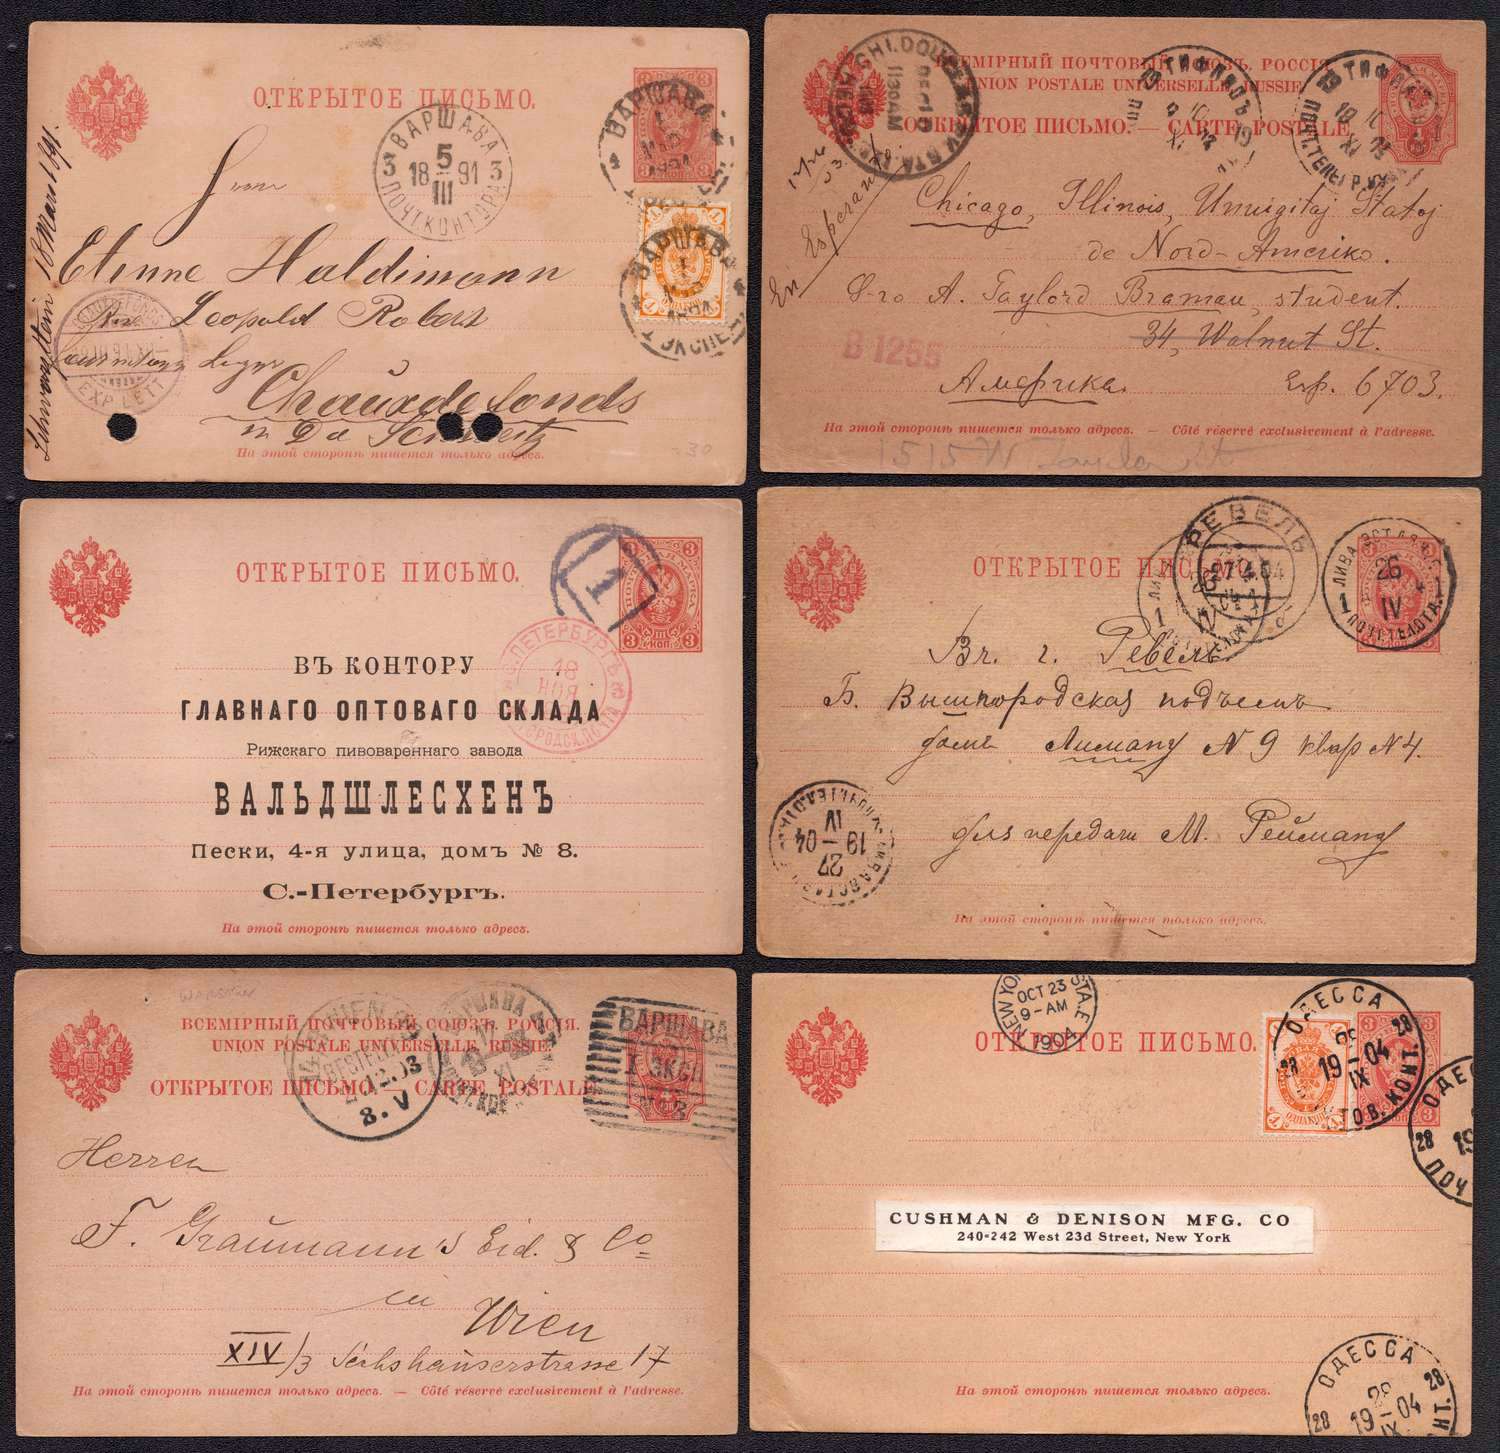 ОТКРЫТОЕ ПИСЬМО.
ВАРШАВА
5
18 91
III
3 3
ПОЧТ.КОНТОРА
ВАРШАВА
Etienne Haldimann
Leopold Robert
Chaux de fonds
EXP. LETT
На этой сторонѣ пишется только адресъ.
ВСЕМІРНЫЙ ПОЧТОВЫЙ СОЮЗЪ. РОССІЯ
UNION POSTALE UNIVERSELLE. RUSSIE
ОТКРЫТОЕ ПИСЬМО. — CARTE POSTALE
ТИФЛИСЪ
ТИФЛИСЪ
11 30 AM
En Esperanto
Chicago, Illinois, Unuigitaj Ŝtatoj
de Nord-Ameriko.
S-ro A. Gaylord Braman, student.
34, Walnut St.
B 1255
Америка. Exp. 6703.
На этой сторонѣ пишется только адресъ. — Côté réservé exclusivement à l'adresse.
1515 W Taylor St
ОТКРЫТОЕ ПИСЬМО.
1
С.ПЕТЕРБУРГЪ
18
НОЯ
ВЪ КОНТОРУ
ГЛАВНАГО ОПТОВАГО СКЛАДА
Рижскаго пивовареннаго завода
ВАЛЬДШЛЕСХЕНЪ
Пески, 4-я улица, домъ № 8.
С.-Петербургъ.
На этой сторонѣ пишется только адресъ.
ОТКРЫТОЕ ПИСЬМО.
РЕВЕЛЬ
27 4.04
26
IV
1 1
Въ г. Ревель
Б. Вышгородская подъемъ
домъ Лиманъ N 9 квар N 4.
для передачи М. Рейману
27
19-04
IV
На этой сторонѣ пишется только адресъ.
ВСЕМІРНЫЙ ПОЧТОВЫЙ СОЮЗЪ. РОССІЯ.
UNION POSTALE UNIVERSELLE. RUSSIE
ОТКРЫТОЕ ПИСЬМО — CARTE POSTALE
8. V
ВАРШАВА
ВАРШАВА
I ЭКСП
Herren
F. Graumann's Eid. & Co
in Wien
XIV/3 Sechshauserstrasse 17
На этой сторонѣ пишется только адресъ. — Côté réservé exclusivement à l'adresse.
NEW YORK STA. E
OCT 23
9-AM
1904
ОТКРЫТОЕ ПИСЬМО.
ОДЕССА
28 28
19-04
IX
ОДЕССА
28
CUSHMAN & DENISON MFG. CO
240-242 West 23d Street, New York
На этой сторонѣ пишется только адресъ.
ОДЕССА
28 28
28
19-04
IX